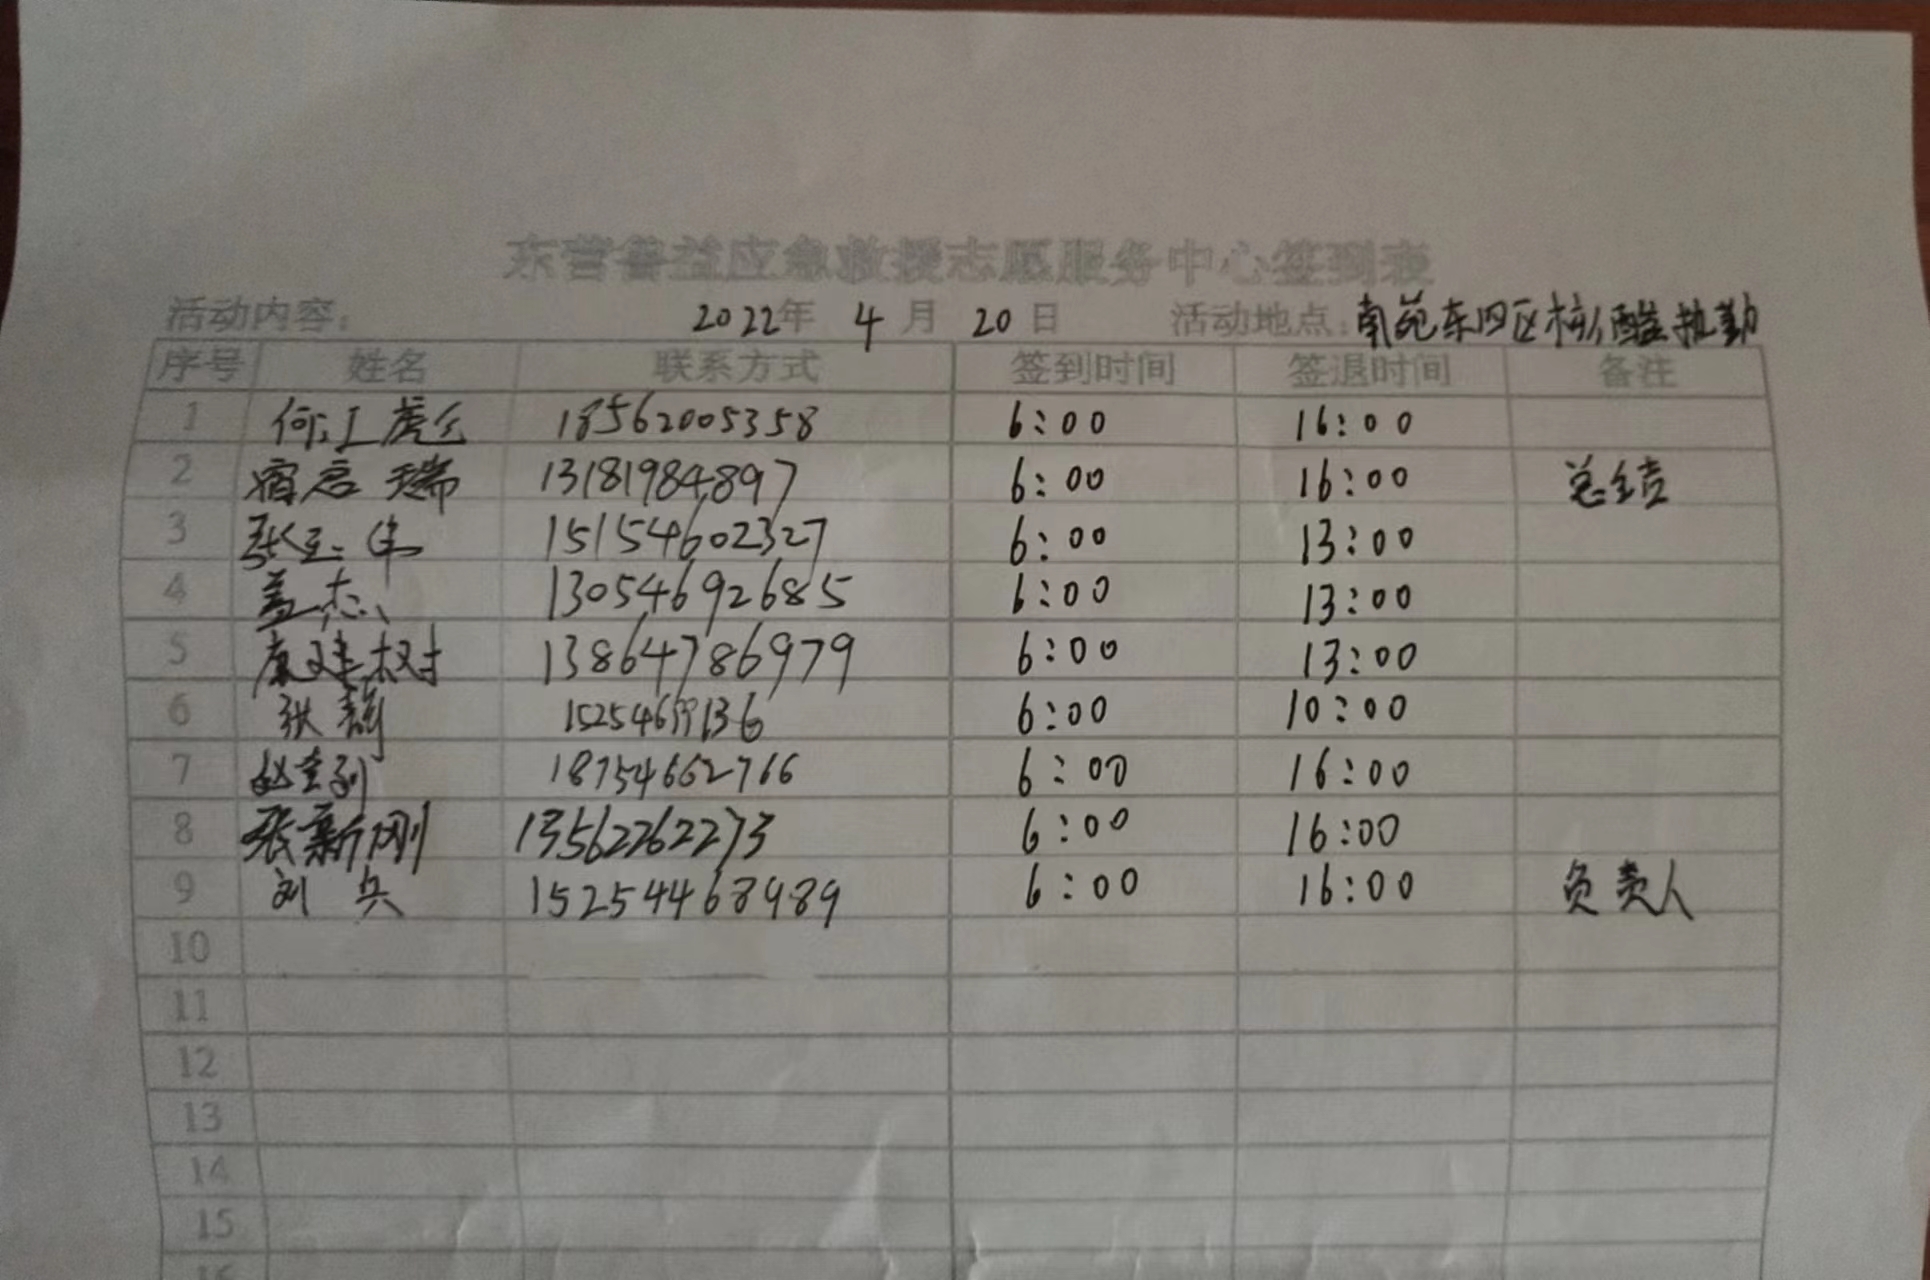 东营善益应急救援志愿服务中心签到表
活动内容： 2022年 4月 20日 活动地点：南苑东四区核酸执勤
序号 姓名 联系方式 签到时间 签退时间 备注
1 18562005358 6:00 16:00
2 宿启瑞 13181984897 6:00 16:00 总结
3 15154602327 6:00 13:00
4 盖杰 13054692685 6:00 13:00
5 康建树 13864786979 6:00 13:00
6 张静 15254699136 6:00 10:00
7 18754662766 6:00 16:00
8 张新刚 13562262273 6:00 16:00
9 刘兵 15254468989 6:00 16:00 负责人
10
11
12
13
14
15
16